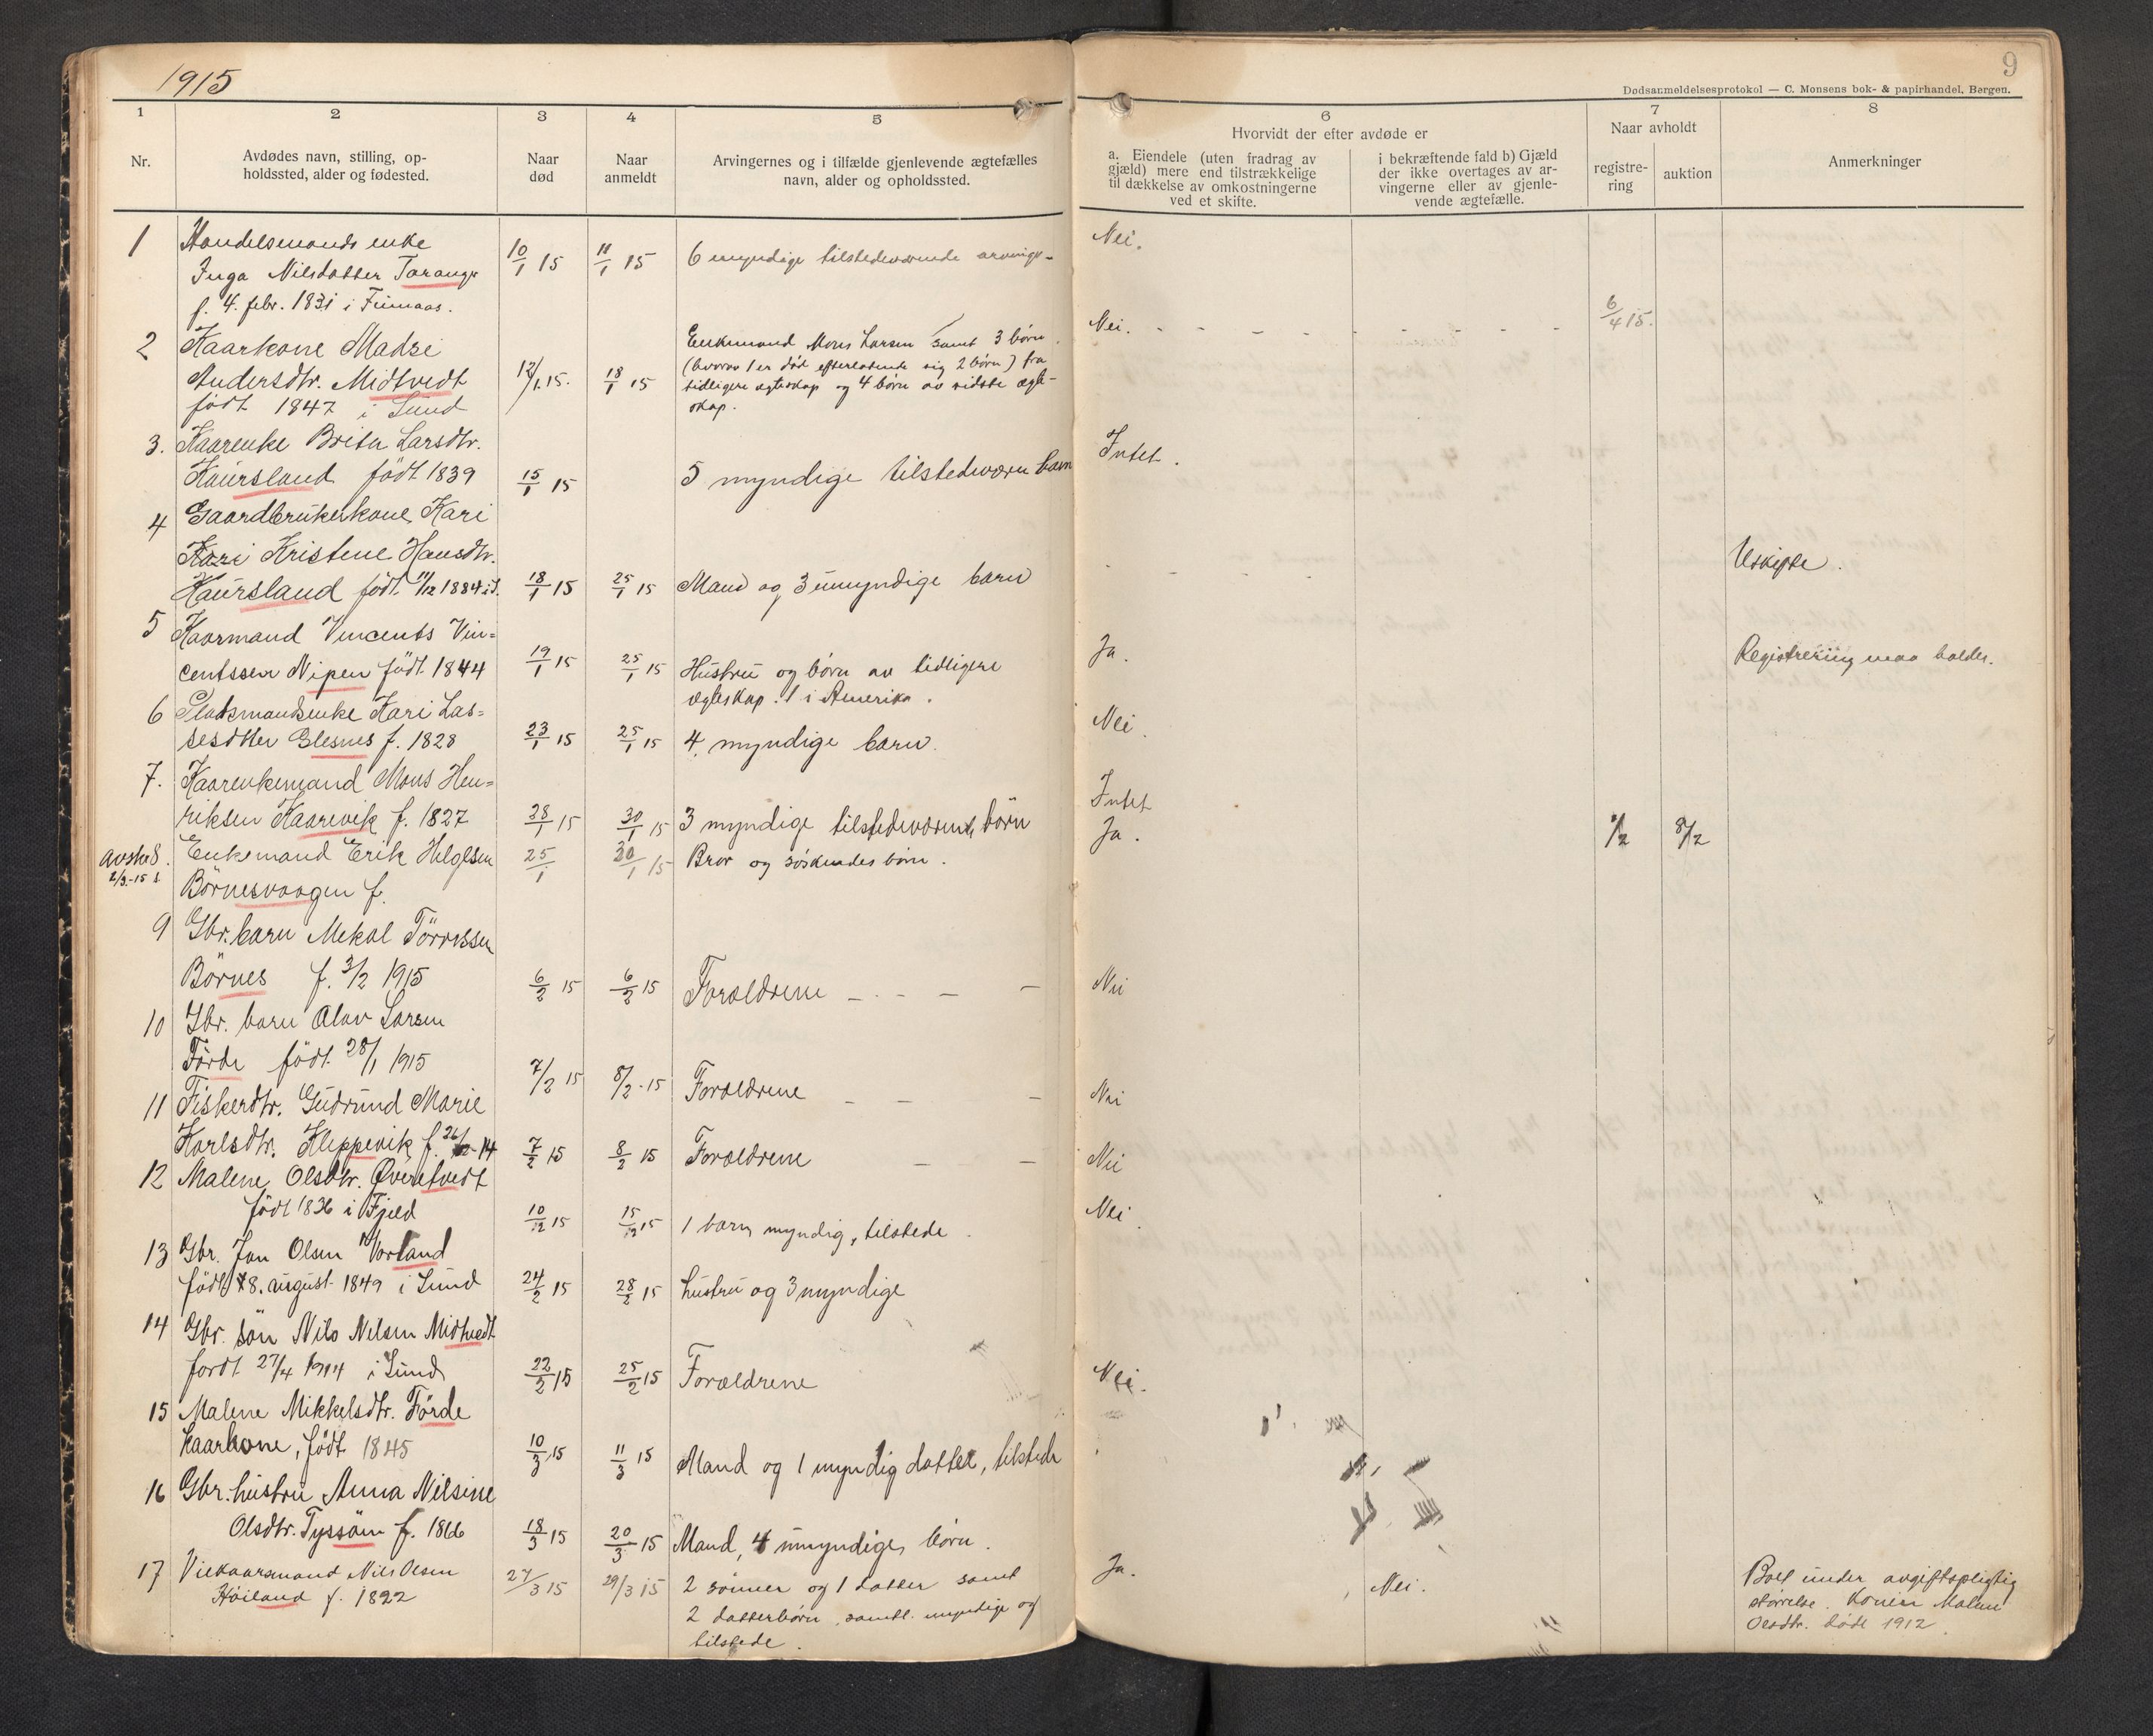 1915
9
Dødsanmeldelsesprotokol — C. Monsens bok- & papirhandel, Bergen.
1
2
3
4
5
6
7
8
Nr.
Avdødes navn, stilling, op-
holdssted, alder og fødested.
Naar
død
Naar
anmeldt
Arvingernes og i tilfælde gjenlevende ægtefælles
navn, alder og opholdssted.
Hvorvidt der efter avdøde er
a. Eiendele (uten fradrag av
gjæld) mere end tilstrækkelige
til dækkelse av omkostningerne
ved et skifte.
i bekræftende fald b) Gjæld
der ikke overtages av ar-
vingerne eller av gjenle-
vende ægtefælle.
Naar avholdt
registre-
ring
auktion
Anmerkninger
1 Handelsmands enke
Inga Nilsdatter Taranger 10/1 15 11/1 15 6 myndige tilstedeværende arvinge- Nei.
f. 4. febr. 1831 i
2 Kaarkone Madsi
Andersdtr. Midtvedt 12/1 15. 18/1 15
født 1847 i Sund
Enkemand Mons Larsen samt 3 børn
(hvorav 1 er død efterlatende sig 2 børn) fra
tidligere ægteskap og 4 børn av sidste ægte-
skap.
Nei. - - - - - - - - - 6/4 15.
3. Kaarenke Brita Larsdtr.
Haursland født 1839 15/1 15 5 myndige tilstedeværn barn Intet.
4 Gaardbrukerkone Kari
Kari Kristene Hansdtr.
Haursland født 11/12 1884 i S. 18/1 15 25/1 15 Mand og 3 umyndige barn - - - Uskifte.
5 Kaarmand Vincents Vin=
centssen Nipen født 1844 19/1 15 25/1 15 Hustru og børn av tidligere
ægteskap. 1 i Amerika. Ja. Registrering maa holdes.
6 Pladsmandsenke Kari Las=
sesdtter Glesnes f. 1828 23/1 15 25/1 15 4 myndige barn. Nei.
7. Kaarenkemand Mons Hen=
riksen Kaarevik f. 1827 28/1 15 30/1 15 3 myndige tilstedeværende børn Intet
2/3.-15
Enkemand Erik Helgesen 25/1 30/1 15 Bror og søskendes børn. Ja. 8/2
Børnesvaagen f.
9 Gbr. barn Mekal Törressen
Börnes f. 3/2 1915 6/2 15 6/2 15 Forældrene - - - - Nei
10 Gbr. barn Olav Larsen
Förde født 28/1 1915 7/2 15 8/2-15 Forældrene - - - Nei
11 Fiskerdtr. Gudrund Marie
Karlsdtr. Kleppevik 7/2 15 8/2 15 Forældrene - - - Nei
12 Malene Olsdtr. Øvretvedt
født 1836 i Fjeld 10/2 15 15/2 15 1 barn myndig, tilstede. Nei.
13 Gbr. Jan Olsen Vorland
født 8. august 1849 i Sund 24/2 15 28/2 15 hustru og 3 myndige
14 Gbr. sön Nils Nilsen Midtvedt
fordt 27/4 1914 i Sund 22/2 15 25/2 15 Forældrene Nei.
15 Malene Mikkelsdtr. Förde
kaarkone, født 1845 10/3 15 11/3 15 Mand og 1 myndig datter, tilstede
16 Gbr. hustru Anna Nilsine
Olsdtr. Tyssöen f. 1866 18/3 15 20/3 15 Mand, 4 umyndige børn.
17 Vilkaarsmand Nils Olsen
Höiland f. 1822 27/3 15 29/3 15 2 sönner og 1 datter samt
2 datterbørn, samtl. myndige og
tilstede.
Ja. Nei.
Boet under avgiftspligtig
størrelse. Konen Malene
Olsdtr. døde 1912.